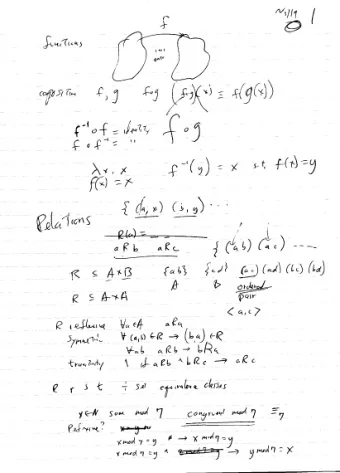 1
functions f
composition f, g f∘g (f∘g)(x) ≡ f(g(x))
f⁻¹∘f = identity f∘g
f∘f⁻¹ = "
λx.x f⁻¹(y) = x s.t. f(x)=y
f(x) = x
{(a,x) (b,y) ...
Relations
R(a) =
aRb aRc {(a b) (a c) ....
R ⊆ A×B {a b} {c d} (a c) (a d) (b c) (b d)
A B ordered pair
R ⊆ A×A
<a,c>
R reflexive ∀a∈A aRa
Symmetric ∀(a,b)∈R → (b a)∈R
∀ab aRb → bRa
transitivity if aRb ∧ bRc → aRc
R r s t ÷ set equivalence classes
x∈N same mod 7 congruent mod 7 ≡₇
x mod 7 = y → x mod 7 = y
x mod 7 = y → y mod 7 = x